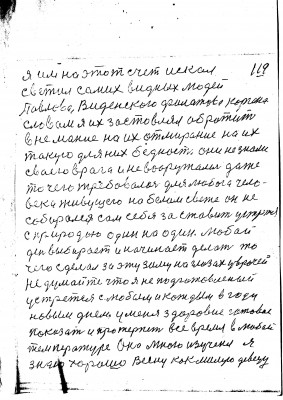 119
я им на этот счет искал
светил самих видных людей
Павлова, Виденского Филатова
словам я их заставлял обратит
внемание на их отмирание на их
такую для них бедность, они не знали
своего врага и не вооружалы даже
то чего требовалос для любога чело-
века живущего на белом свете он не
собирался сам себя заставит
с природою один на один. любой
ден выбирает и начинает делат то
чего сделал за эту зиму на глазах
не думайте что я не подготовленый
устретея с любым и каждым в году
новым днем у меня здоровие готовое
показат и протерпет все время в любой
температуре Оно много изучено я
знаю хорошо Весну как милую девицу